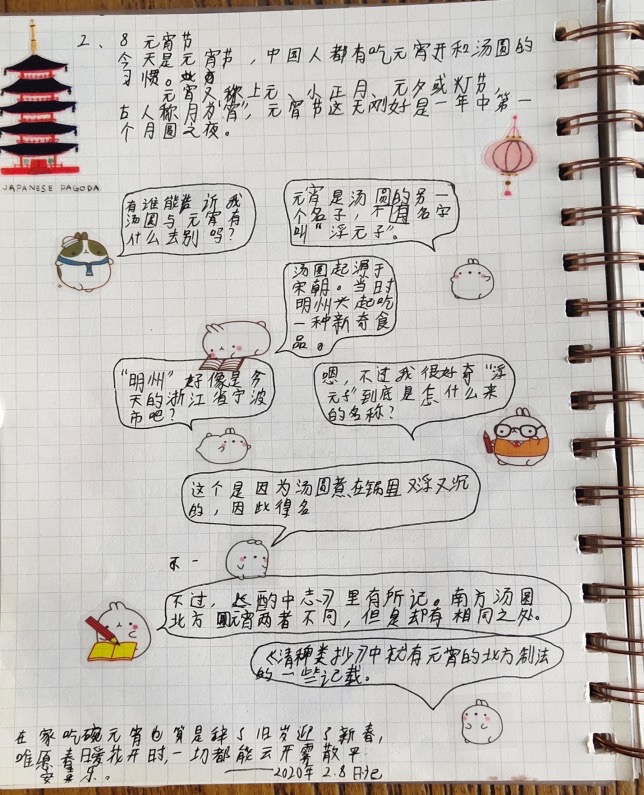 2、8 元宵节
今天是元宵节，中国人都有吃元宵并和汤圆的
习惯。
元宵又称上元、小正月、元夕或灯节，
古人称月为"宵"，元宵节这天刚好是一年中第一
个月圆之夜。
JAPANESE PAGODA
有谁能告诉我
汤圆与元宵有
什么去别吗？
元宵是汤圆的另一
个名子，不有名字
叫"浮元子"。
汤圆起源于
宋朝。当时
明州兴起吃
一种新奇食
品。
"明州"好像是今
天的浙江省宁波
市吧？
嗯，不过我很好奇"浮
元子"到底是怎什么来
的名称？
这个是因为汤圆煮在锅里又浮又沉
的，因此得名
不一
不过，《酌中志》里有所记。南方汤圆
北方元宵两者不同，但是却有相同之处。
《清稗类抄》中就有元宵的北方制法
的一些记载。
在家吃碗元宵也算是辞了旧岁迎了新春，
唯愿春日暖花开时，一切都能云开雾散平
安喜乐。
——2020年 2.8 日记